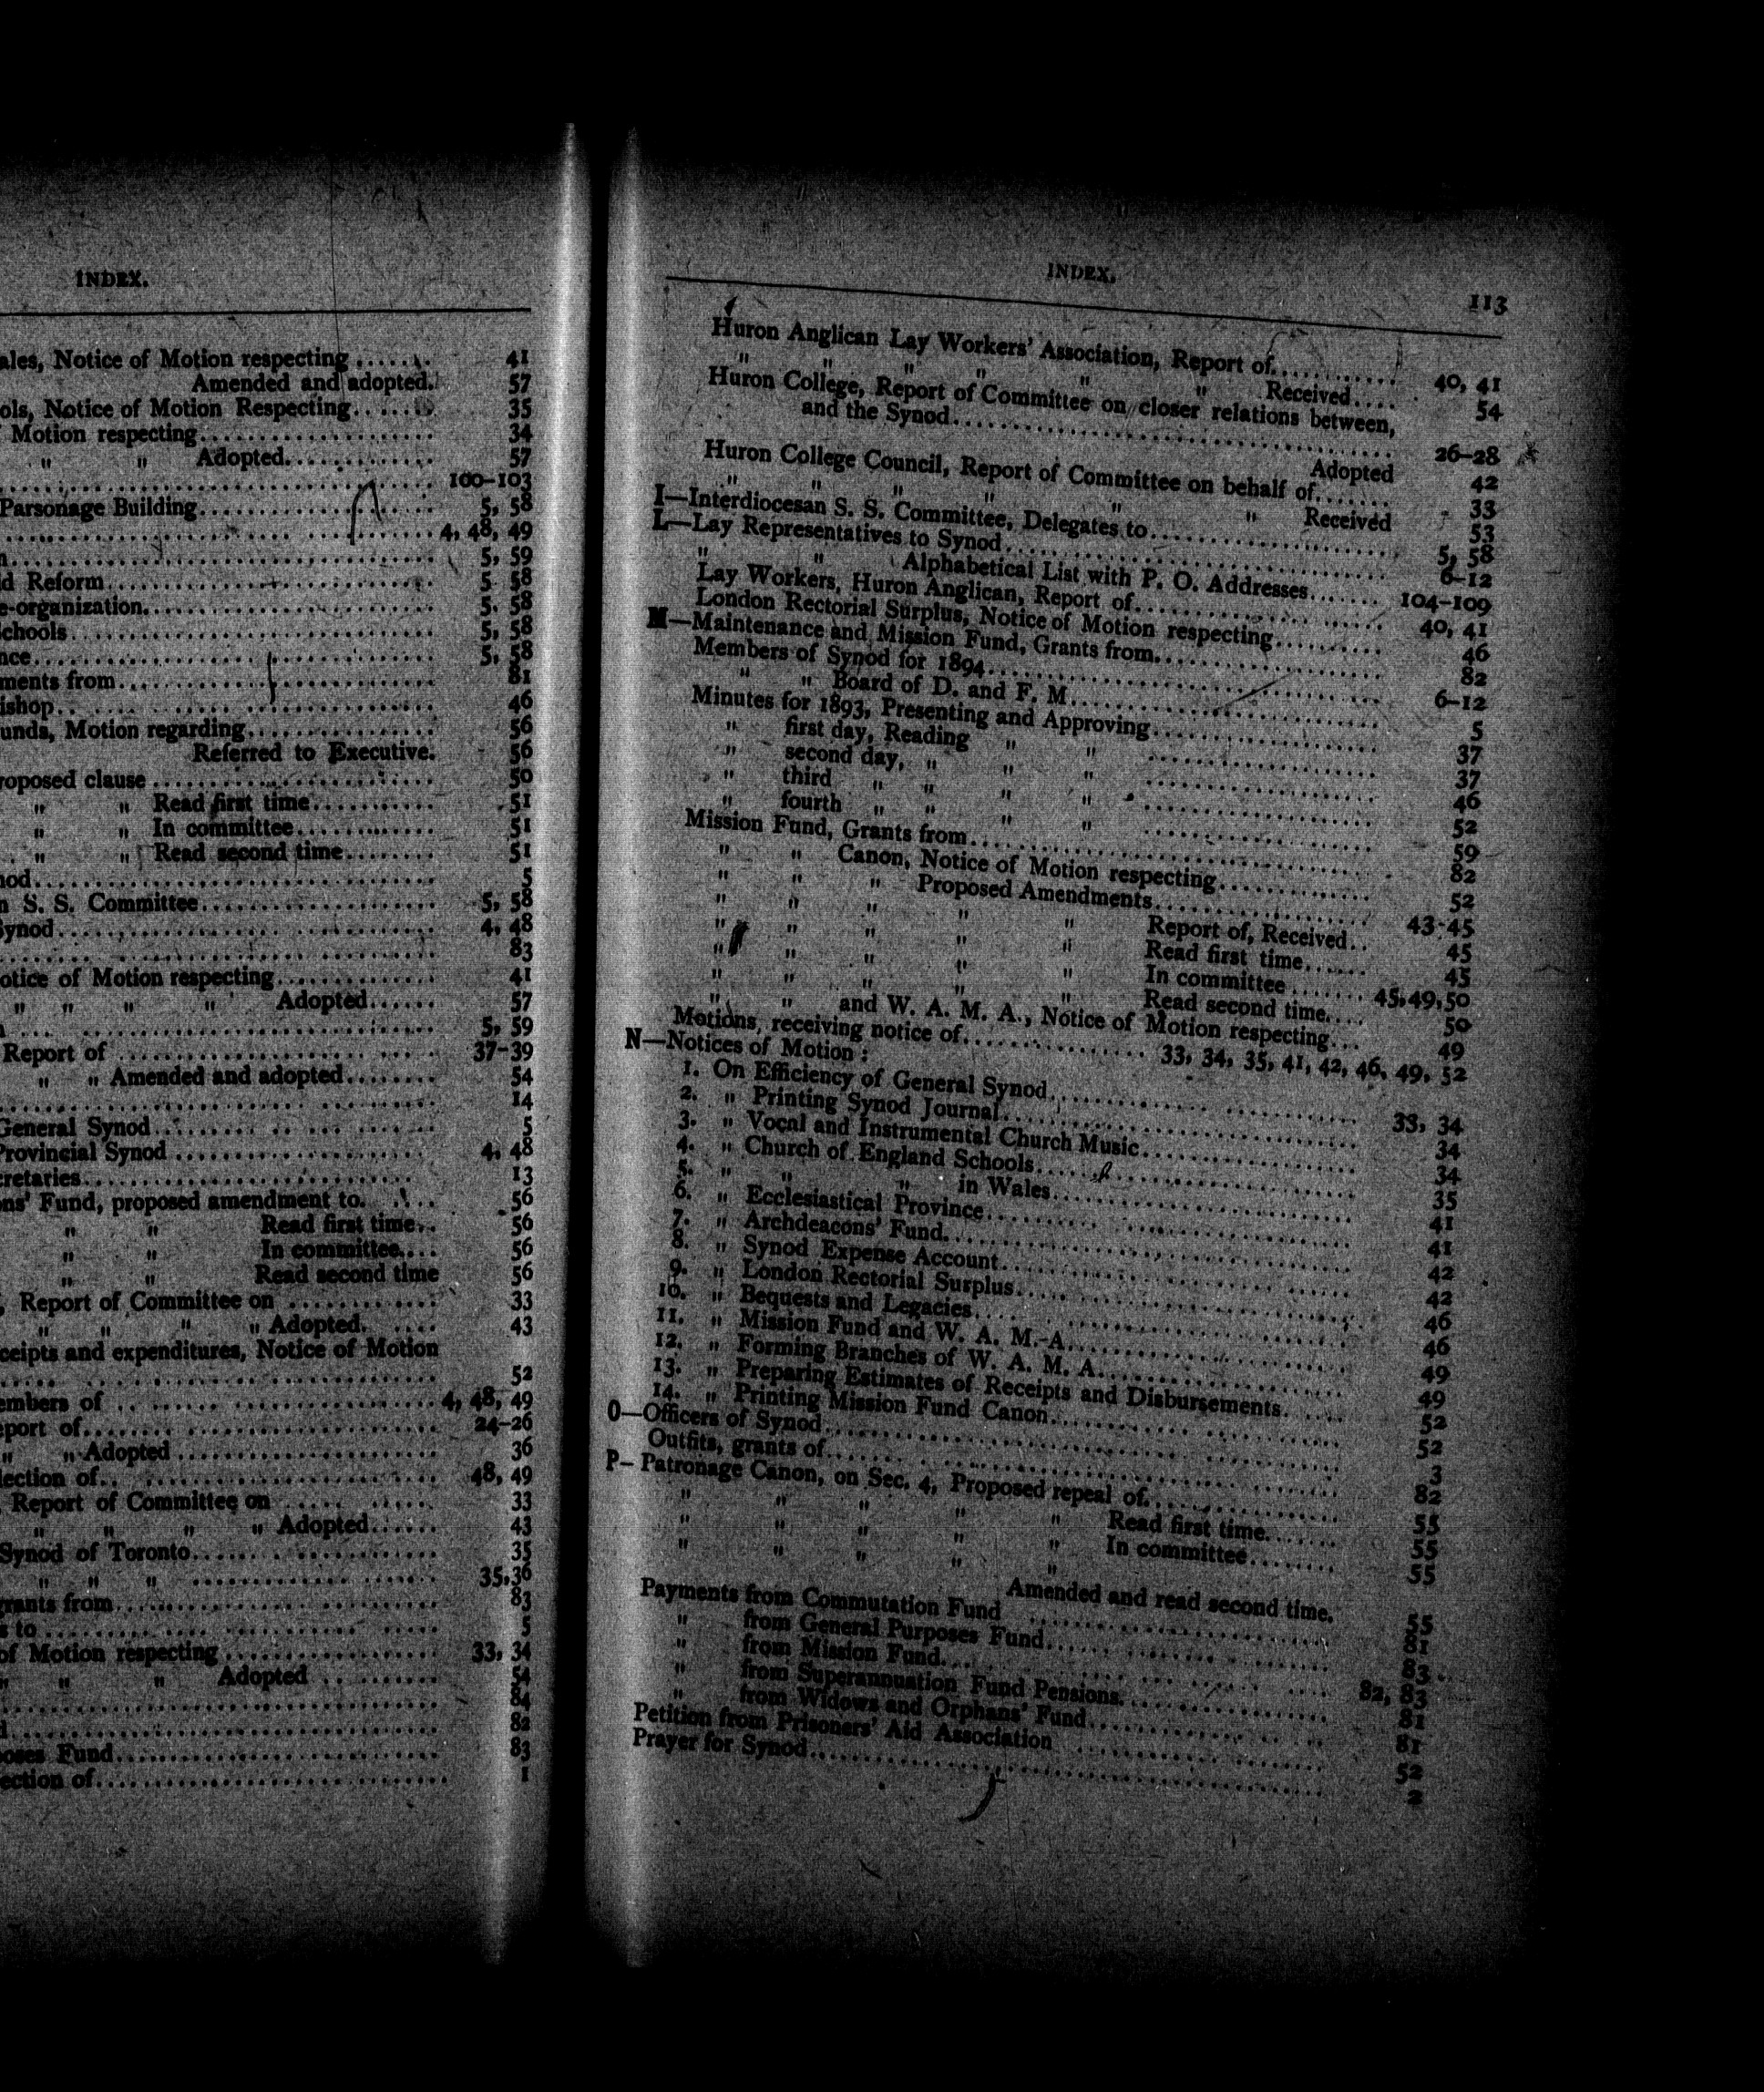 INDEX.
ales, Notice of Motion respecting ...... 41
Amended and adopted. 57
ols, Notice of Motion Respecting...... 35
Motion respecting.................... 34
" " Adopted.............. 57
.................................... 100-103
Parsonage Building...................... 5, 58
.................................... 4, 48, 49
n.................................... 5, 59
d Reform............................ 5 58
e-organization......................... 5. 58
chools................................ 5, 58
nce................................... 5, 58
ments from............................ 81
ishop................................. 46
unds, Motion regarding................. 56
Referred to Executive. 56
roposed clause ........................ 50
" " Read first time............ 51
" " In committee.............. 51
" " Read second time......... 51
nod................................... 5
n S. S. Committee..................... 5, 58
Synod................................. 4, 48
.................................... 83
otice of Motion respecting.............. 41
" " " " Adopted...... 57
n ... ............................... 5, 59
Report of ............................ 37-39
" " Amended and adopted........ 54
.................................... 14
General Synod........................ 5
Provincial Synod ...................... 4, 48
cretaries............................. 13
ons' Fund, proposed amendment to. .... 56
" " Read first time... 56
" " In committee.... 56
" " Read second time 56
, Report of Committee on ............ 33
" " " " Adopted. .... 43
ceipts and expenditures, Notice of Motion
.................................... 52
embers of ............................ 4, 48, 49
eport of.............................. 24-26
" " Adopted ........................ 36
lection of............................ 48, 49
, Report of Committee on ..... ...... 33
" " " " Adopted...... 43
Synod of Toronto..................... 35
" " " ...................... 35,36
grants from........................... 83
s to ................................. 5
of Motion respecting .................. 33, 34
" " " Adopted .......... 54
.................................... 84
d.................................... 82
poses Fund............................ 83
ection of............................. 1
INDEX.
113
Huron Anglican Lay Workers' Association, Report of............ 40, 41
" " " " " " Received.... 54
Huron College, Report of Committee on closer relations between,
and the Synod.................................... 26-28
Adopted 42
Huron College Council, Report of Committee on behalf of....... 33
" " " " " " Received 53
I—Interdiocesan S. S. Committee, Delegates to.................... 5, 58
L—Lay Representatives to Synod.................................. 6-12
" " Alphabetical List with P. O. Addresses....... 104-109
Lay Workers, Huron Anglican, Report of...................... 40, 41
London Rectorial Surplus, Notice of Motion respecting.......... 46
M—Maintenance and Mission Fund, Grants from.................... 82
Members of Synod for 1894................................. 6-12
" " Board of D. and F. M.......................... 5
Minutes for 1893, Presenting and Approving.................... 37
" first day, Reading " " .................... 37
" second day, " " " .................... 46
" third " " " " .................... 52
" fourth " " " " .................... 59
Mission Fund, Grants from................................... 82
" " Canon, Notice of Motion respecting............ 52
" " " Proposed Amendments.................... 43-45
" " " " " Report of, Received.. 45
" " " " " Read first time...... 45
" " " " " In committee ....... 45,49,50
" " " " " Read second time.... 50
" " and W. A. M. A., Notice of Motion respecting... 49
Motions, receiving notice of................ 33, 34, 35, 41, 42, 46, 49, 52
N—Notices of Motion :
1. On Efficiency of General Synod............................ 33, 34
2. " Printing Synod Journal................................. 34
3. " Vocal and Instrumental Church Music.................... 34
4. " Church of England Schools.............................. 35
5. " " " in Wales............................ 41
6. " Ecclesiastical Province................................. 41
7. " Archdeacons' Fund...................................... 42
8. " Synod Expense Account................................. 42
9. " London Rectorial Surplus............................... 46
10. " Bequests and Legacies................................. 46
11. " Mission Fund and W. A. M.-A........................... 49
12. " Forming Branches of W. A. M. A........................ 49
13. " Preparing Estimates of Receipts and Disbursements...... 52
14. " Printing Mission Fund Canon........................... 52
O—Officers of Synod............................................ 3
Outfits, grants of........................................... 82
P— Patronage Canon, on Sec. 4, Proposed repeal of................ 55
" " " " " Read first time....... 55
" " " " " In committee........ 55
" " " " " Amended and read second time. 55
Payments from Commutation Fund ............................ 81
" from General Purposes Fund......................... 83
" from Mission Fund.................................. 82, 83
" from Superannuation Fund Pensions................... 81
" from Widows and Orphans' Fund....................... 81
Petition from Prisoners' Aid Association ..................... 52
Prayer for Synod............................................. 2